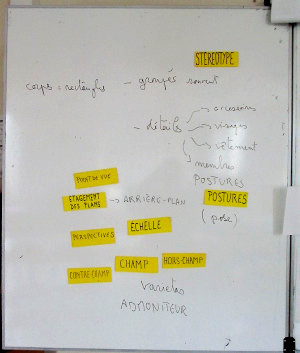 STÉRÉOTYPE
corps : rectangles – groupés souvent
– détails
accessoires
visages
vêtement
membres
POSTURES
POINT DE VUE
ÉTAGEMENT DES PLANS → ARRIÈRE-PLAN
POSTURES
(pose)
ÉCHELLE
PERSPECTIVES
CHAMP
HORS-CHAMP
CONTRE-CHAMP
ADMONITEUR